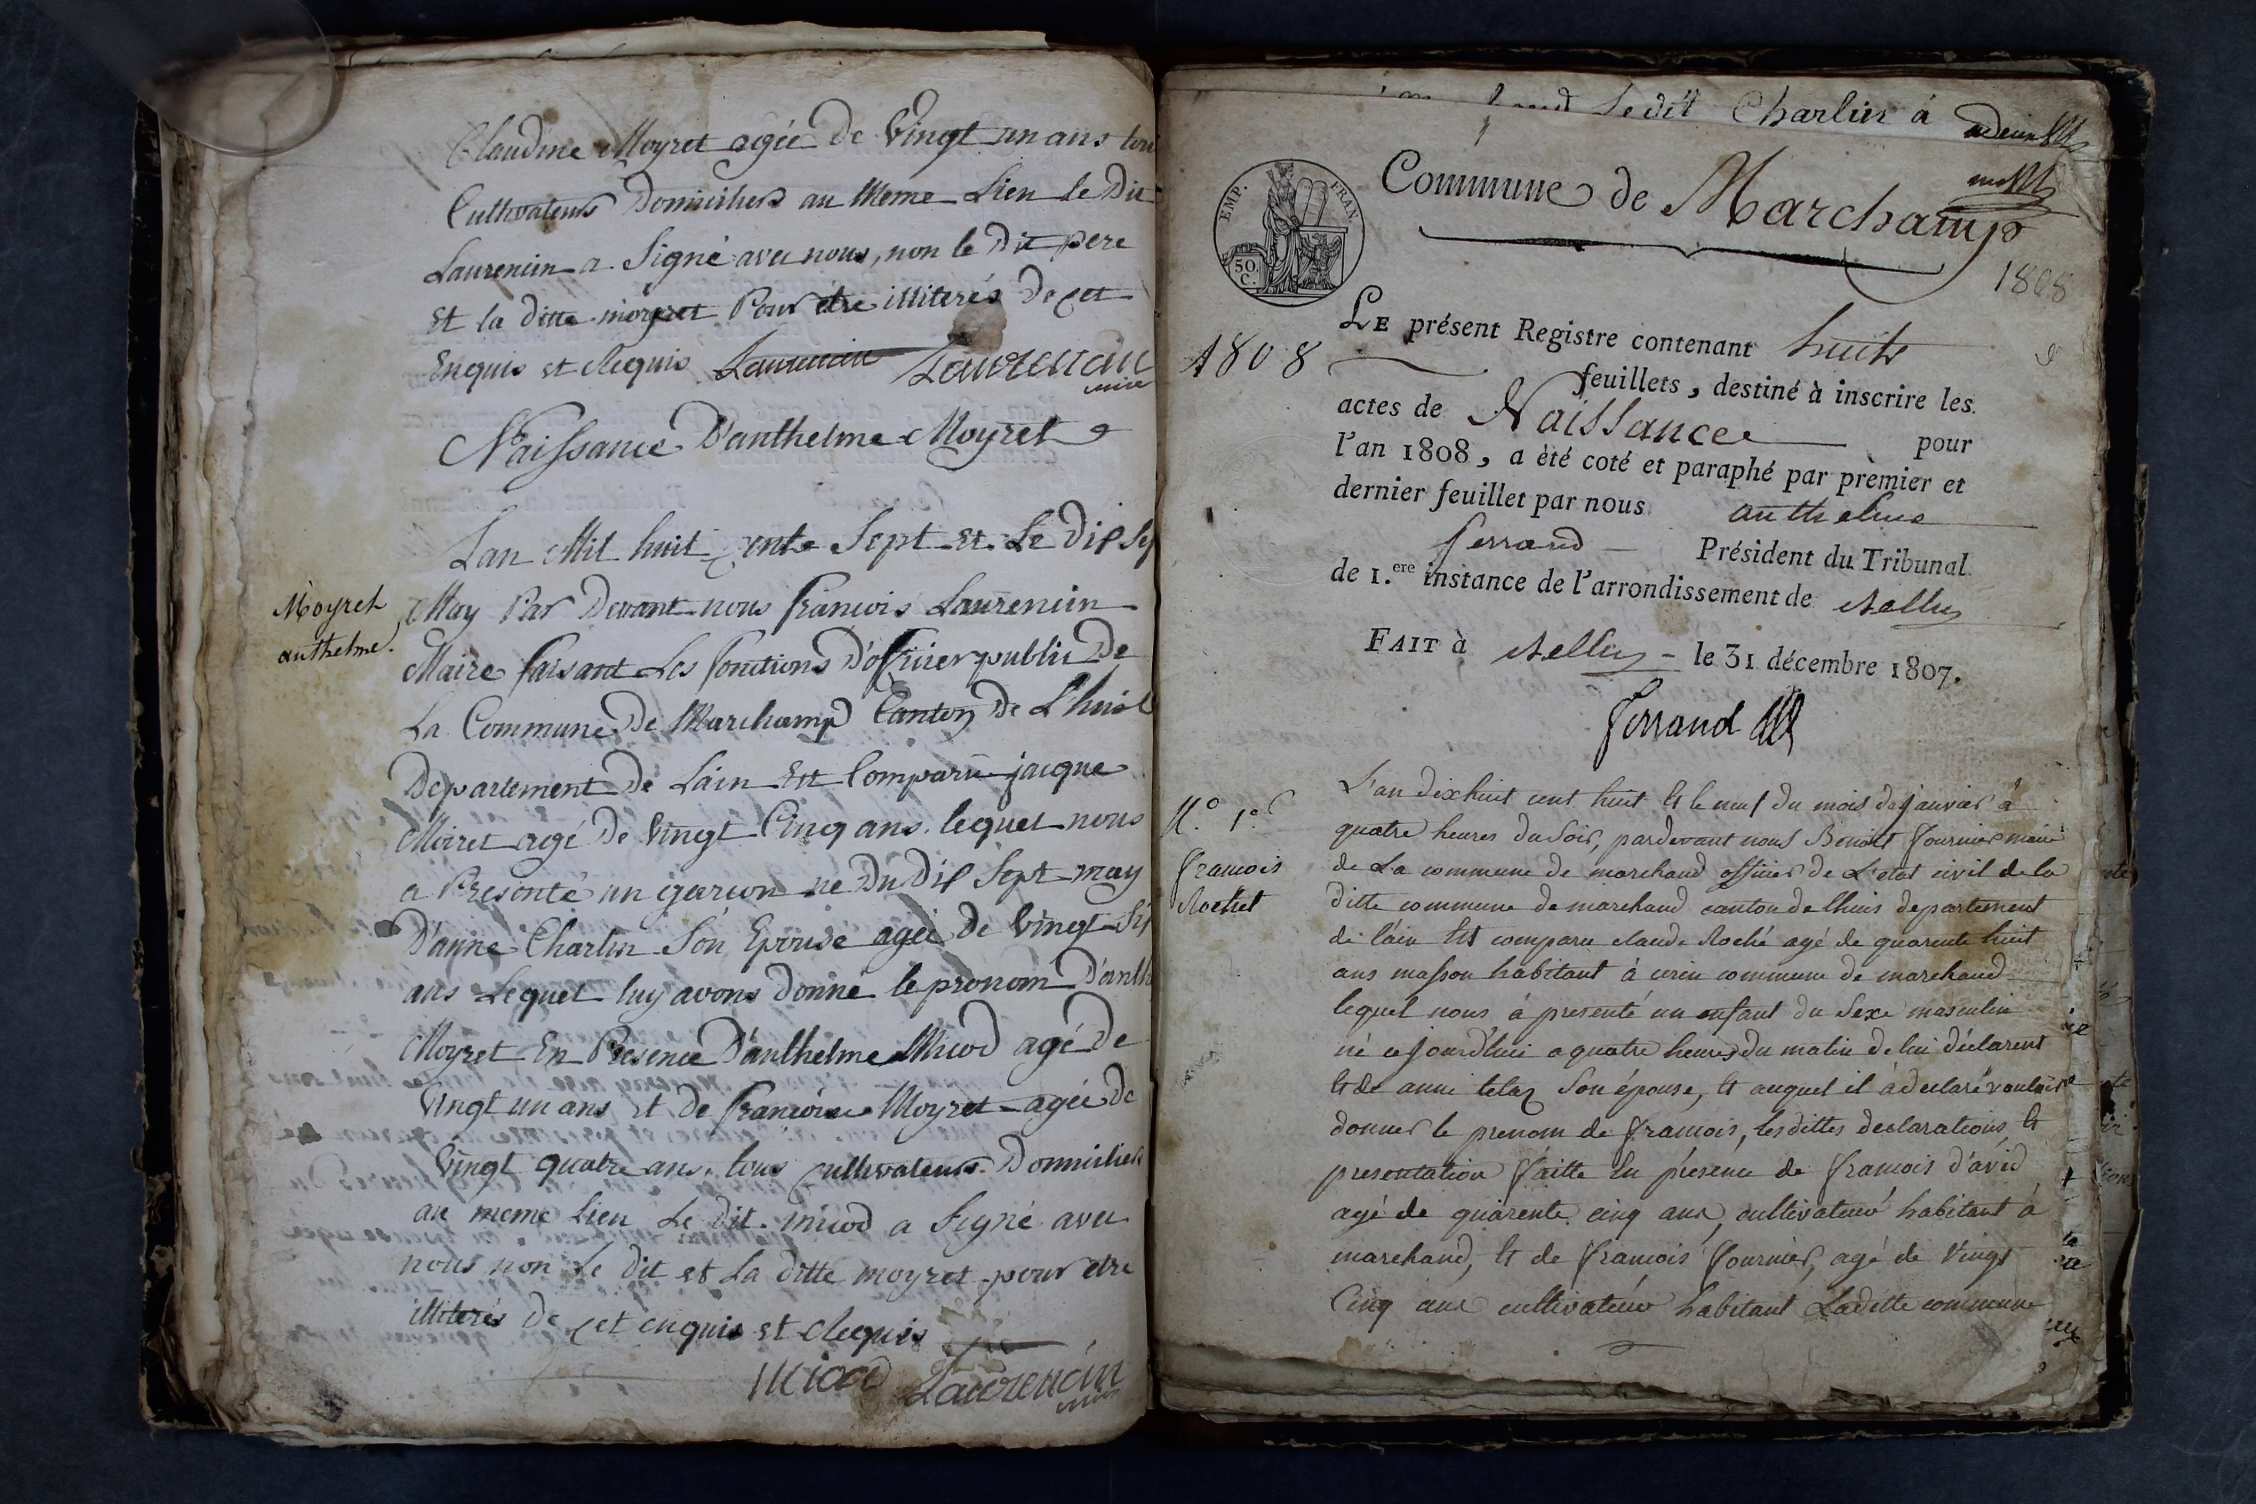 Claudine Moyret agée de Vingt un ans tou
Cultivateurs Domiciliers au Meme Lieu le Dit
Laurencin a Signé avec nous, non le Dit pere
Et la Ditte moyret Pour être illiterés De cet
Enquis et Requis Laurencin Laurencin
maire
Naissance D'anthelme Moyret
Lan Mil huit cents Sept Et Le Dix Sep
Moyret
anthelme.
May Par Devant nous francois Laurencin
Maire faisant Les fonctions D'officier public De
La Commune De Marchamp Canton De L'huis
Departement De Lain Est Comparu jacque
Moiret agé De Vingt Cinq ans lequel nous
a Presenté un garcon né Du Dix Sept may
D'anne Charlin Son Epouse agée De Vingt Six
ans Lequel luy avons Donné le pronom D'anth
Moyret En Presence D'anthelme Micod agé De
Vingt un ans et de francoise Moyret agée De
Vingt quatre ans, tous cultivateurs Domicilier
au meme Lieu Le Dit micod a Signé avec
nous non Le Dit et La Ditte moyret pour etre
illiterés De cet enquis et Requis
Micod Laurencin
maire
Le dit Charlin á
Commune de Marchamp
1808
EMP. FRAN.
50. C.
1808
LE présent Registre contenant huit
feuillets, destiné à inscrire les
actes de Naissance pour
l'an 1808, a été coté et paraphé par premier et
dernier feuillet par nous anthelme
ferrand Président du Tribunal
de 1.ere instance de l'arrondissement de Belley
FAIT à Belley le 31 décembre 1807.
ferrand
N.º 1.er
francois
Rochet
L'an dixhuit cent huit et le neuf du mois de janvier à
quatre heures du Soir, pardevant nous Benoit fournier maire
de La commune de marchand officier de L'etat civil de la
ditte commune de marchand canton de lhuis departement
de l'ain Est comparu claude Roché agé de quarente huit
ans masson habitant à cerin commune de marchand
lequel nous à presenté un enfant du Sexe masculin
né ce jourd'hui a quatre heures du matin de lui déclarent
et de anne telaz Son épouse, et auquel il à declaré vouloir
donner le prenom de francois, les dittes declarations et
presentation faitte En présence de francois d'avid
agé de quarente cinq ans, cultivateur habitant à
marchand, et de francois fournier, agé de Vingt
Cinq ans cultivateur habitant Laditte commune